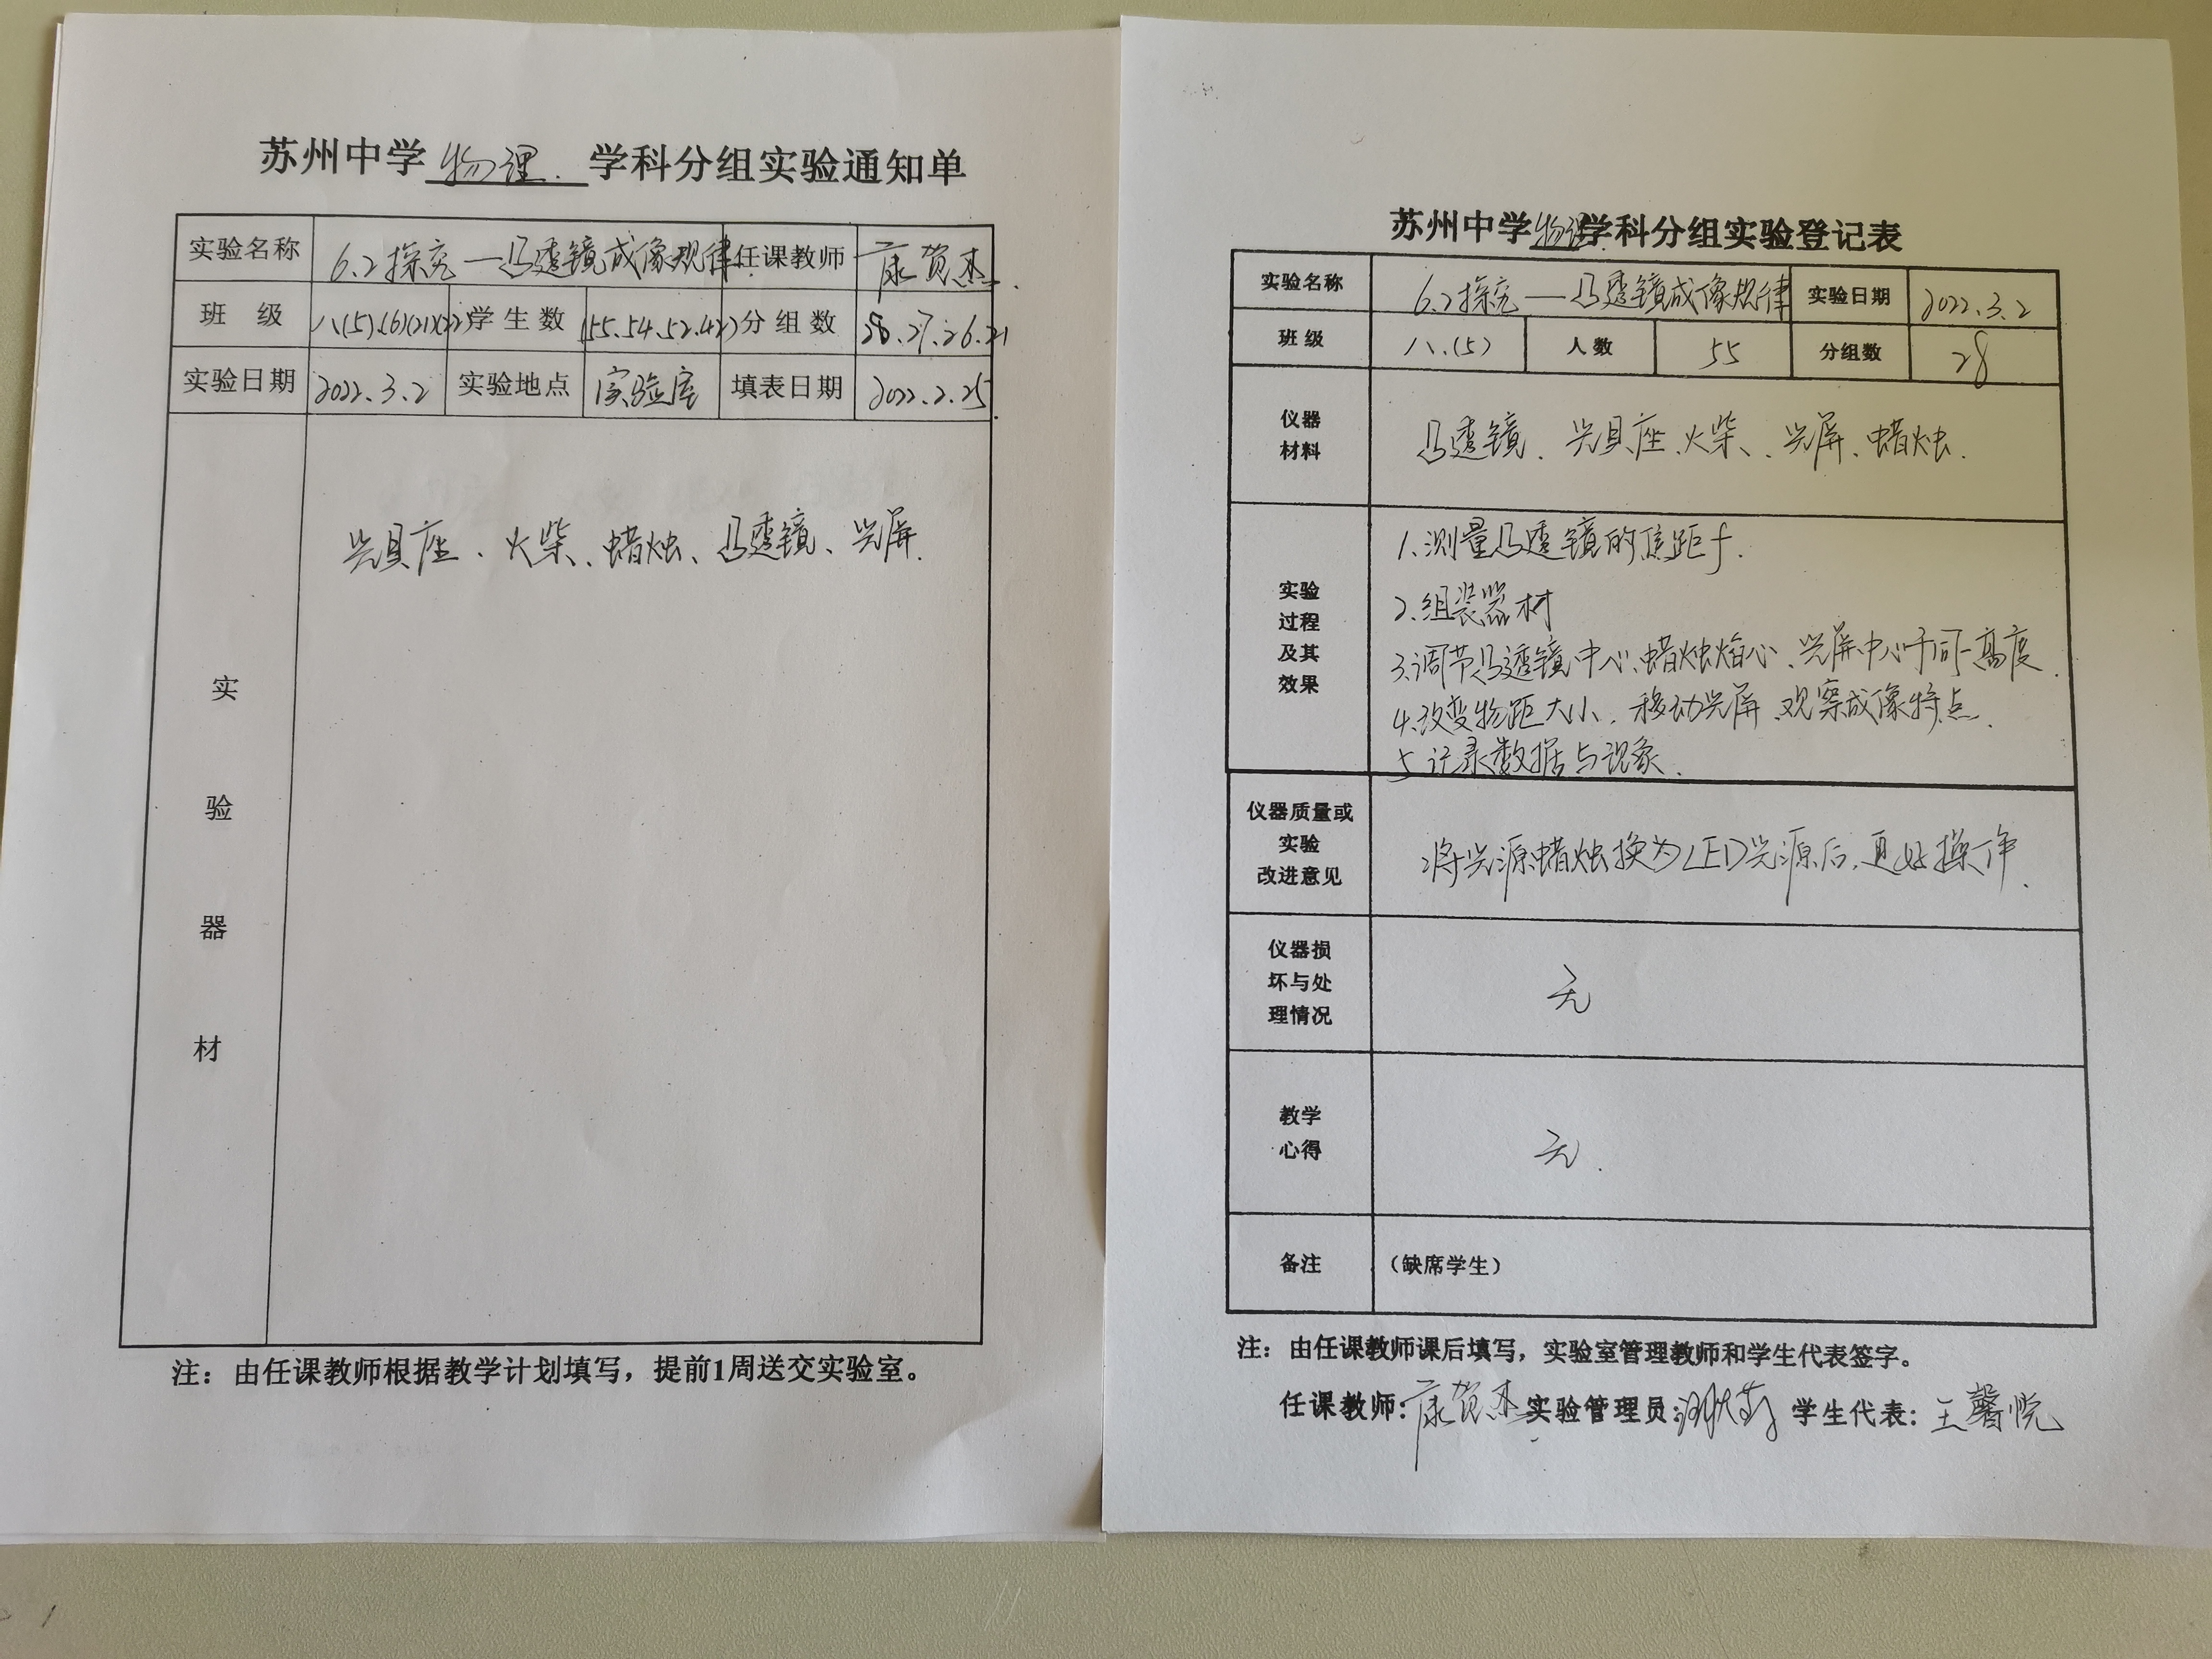 苏州中学物理学科分组实验通知单
实验名称 6.2探究—凸透镜成像规律 任课教师 康贺杰
班 级 八(5)、(6)(21)(22) 学生数 (55.54.52.42) 分组数 28.27.26.21
实验日期 2022.3.2 实验地点 实验室 填表日期 2022.2.25
实验器材
光具座、火柴、蜡烛、凸透镜、光屏.
注：由任课教师根据教学计划填写，提前1周送交实验室。
苏州中学物理学科分组实验登记表
实验名称 6.2探究—凸透镜成像规律 实验日期 2022.3.2
班级 八.(5) 人数 55 分组数 28
仪器
材料
凸透镜、光具座、火柴、光屏、蜡烛.
实验
过程
及其
效果
1.测量凸透镜的焦距f.
2.组装器材
3.调节凸透镜中心、蜡烛焰心、光屏中心于同一高度.
4.改变物距大小，移动光屏、观察成像特点.
5 记录数据与现象.
仪器质量或
实验
改进意见
将光源蜡烛换为LED光源后，更好操作.
仪器损
坏与处
理情况
无
教学
心得
无.
备注 （缺席学生）
注：由任课教师课后填写，实验室管理教师和学生代表签字。
任课教师：康贺杰 实验管理员： 学生代表：王馨悦